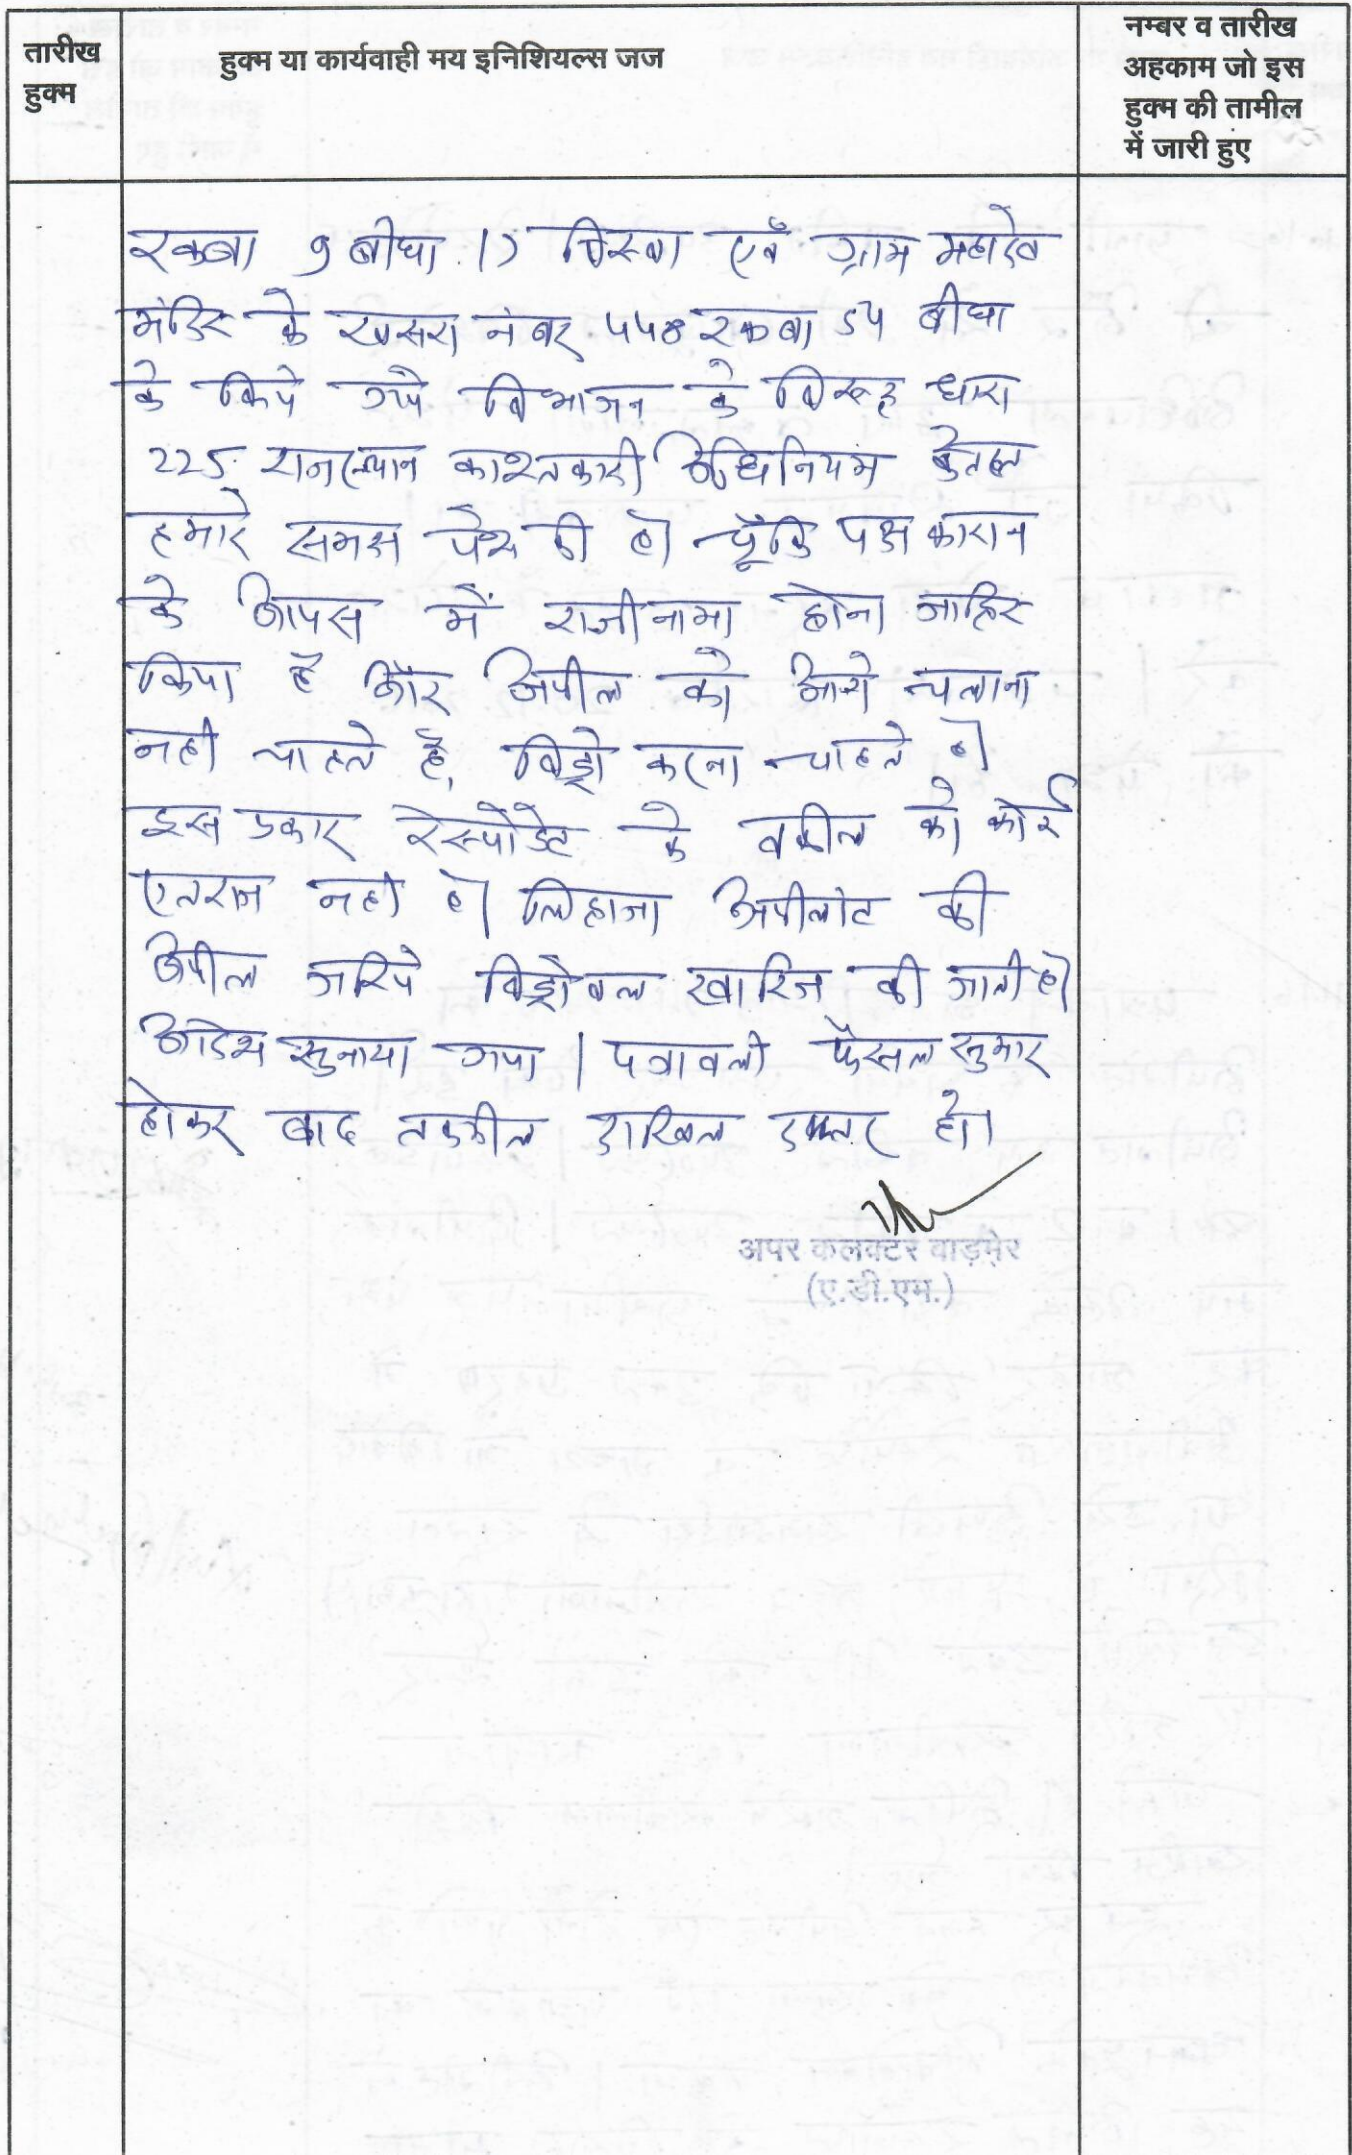 तारीख
हुक्म
हुक्म या कार्यवाही मय इनिशियल्स जज
नम्बर व तारीख
अहकाम जो इस
हुक्म की तामील
में जारी हुए
रकबा 9 बीघा 17 बिस्वा एवं ग्राम महादेव
मंदिर के खसरा नंबर 448 रकबा 54 बीघा
के किये गये विभाजन के विरूद्ध धारा
225 राजस्थान काश्तकारी अधिनियम के तहत
हमारे समक्ष पेश की है। चूँकि पक्षकारान
के आपस में राजीनामा होना जाहिर
किया है और अपील को आगे चलाना
नही चाहते है, विड्रो करना चाहते है।
इस प्रकार रेस्पोंडेंट के वकील को कोई
एतराज नही है। लिहाजा अपीलांट की
अपील जरिये विड्रोवल खारिज की जाती है।
आदेश सुनाया गया। पत्रावली फैसल सुमार
होकर बाद तकमील दाखिल दफ्तर हो।
अपर कलक्टर बाड़मेर
(ए.डी.एम.)